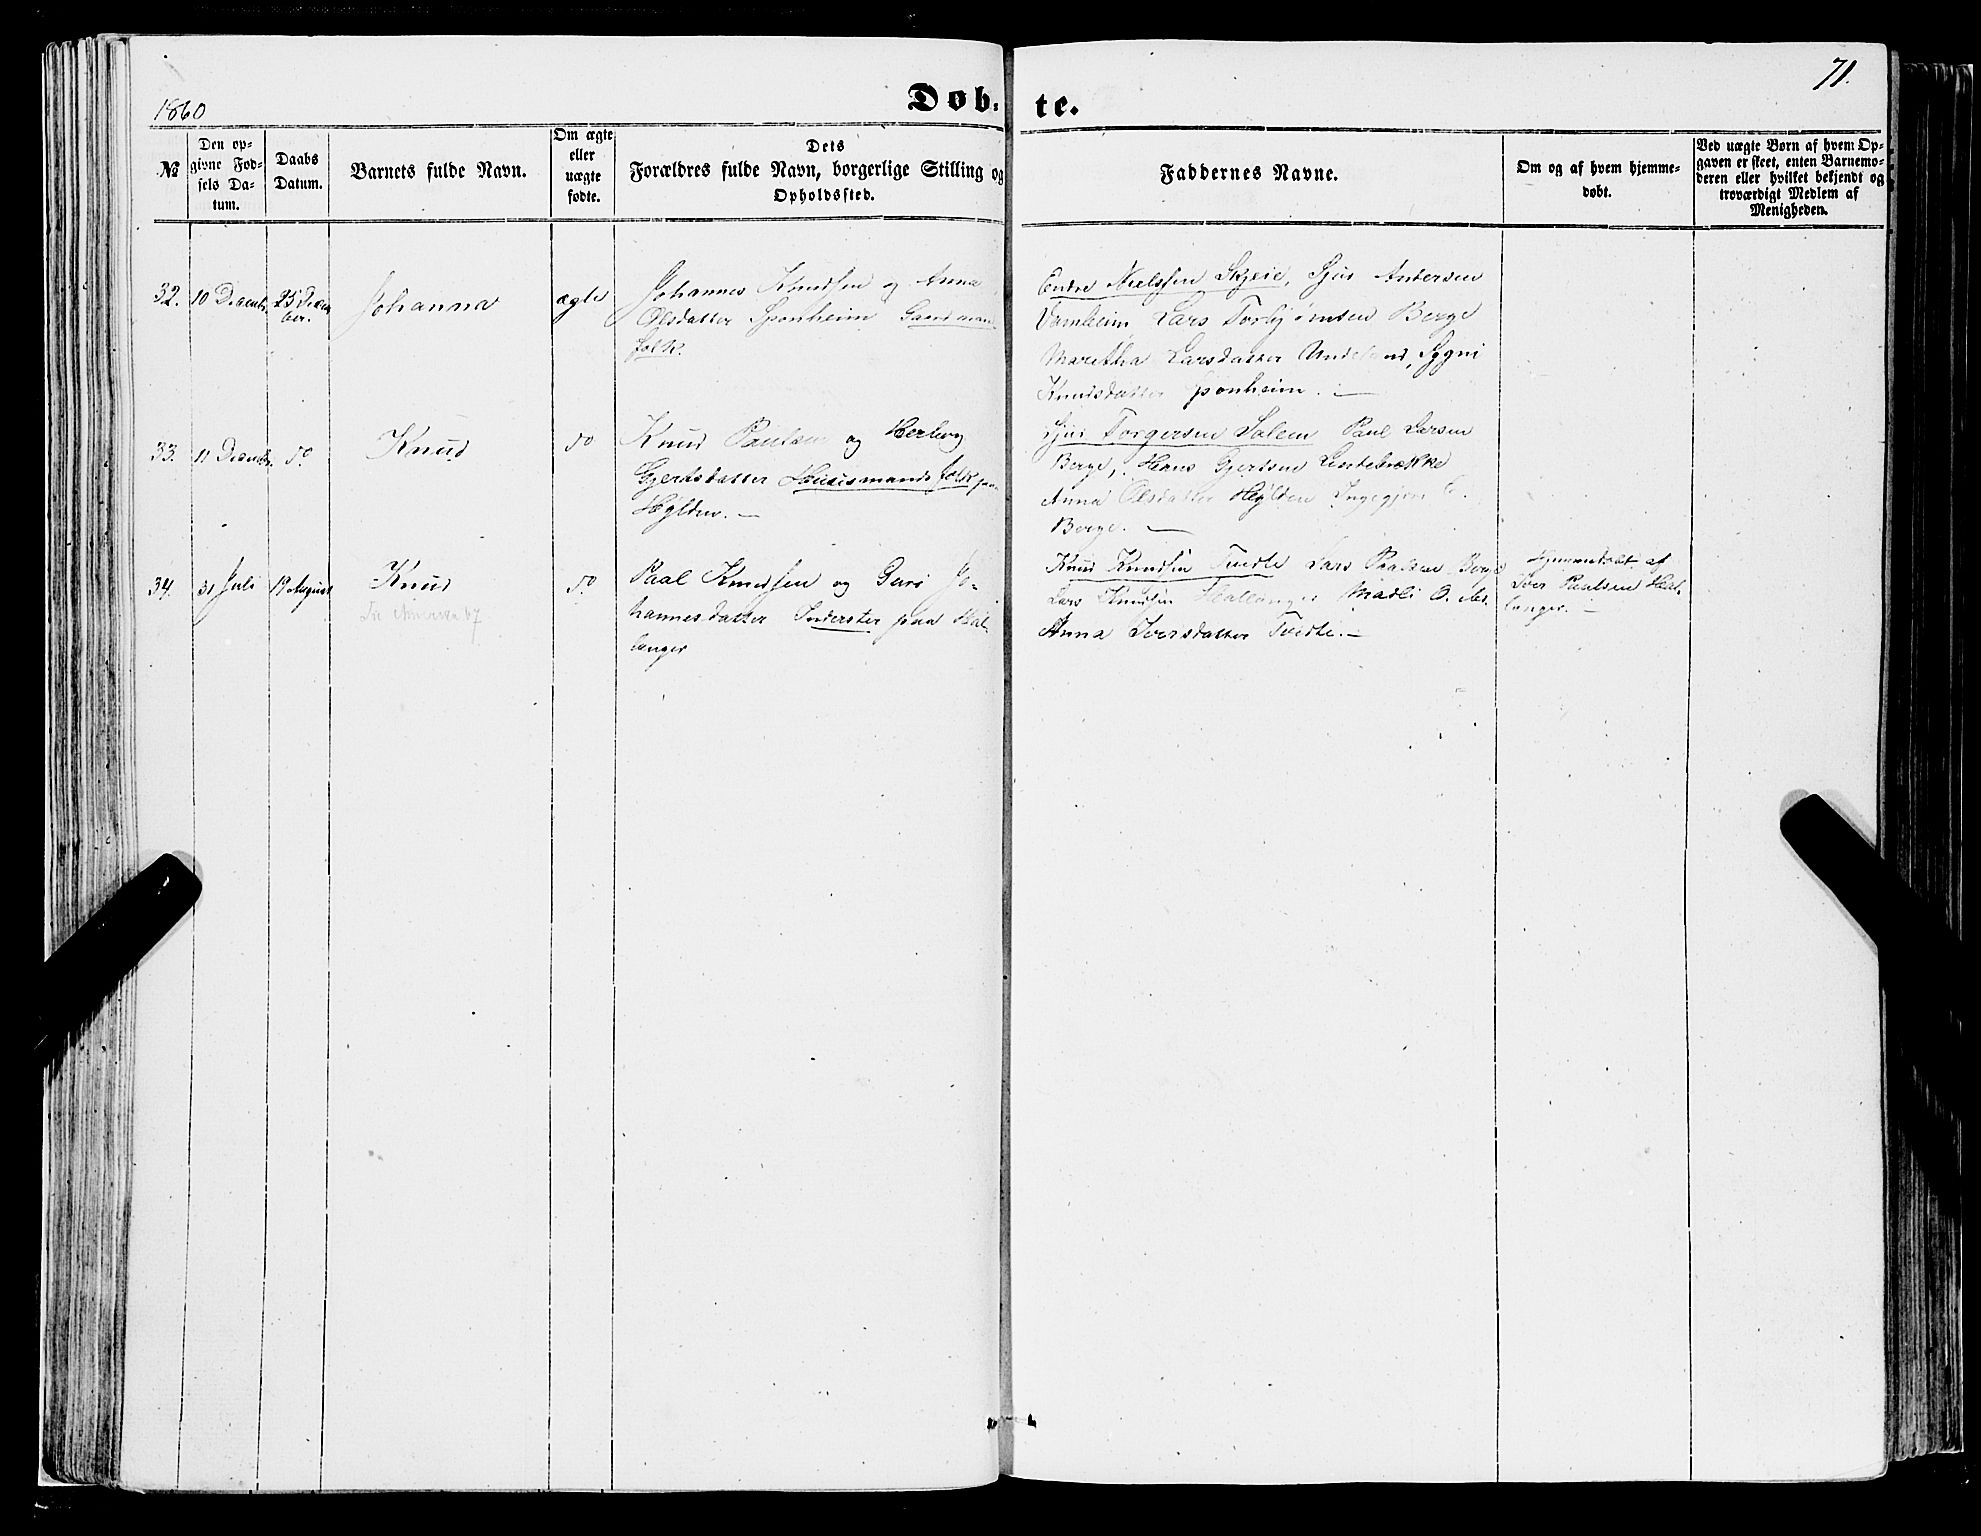 1860
Døb- te.
71.
№
Den op-
givne Fød-
sels Da-
tum.
Daabs
Datum.
Barnets fulde Navn.
Om ægte
eller
uægte
fødte.
Dets
Forældres fulde Navn, borgerlige Stilling og
Opholdssted.
Faddernes Navne.
Om og af hvem hjemme-
døbt.
Ved uægte Børn af hvem Op-
gaven er skeet, enten Barnemo-
deren eller hvilket bekjendt og
troværdigt Medlem af
Menigheden.
32.
10 Decemb.
25 Decem
ber.
Johanna
ægte
Johannes Knudsen og Anna
Olsdatter Sponheim Gaardman
folk.
Endre Nielssen Skjeie, Sjur Andersen
Lars Torbjørnsen Berge
Maritha Larsdatter Undeland, Sygni
Knudsdatter Sponheim. —
33.
11 Decemb.
do
Knud
do
Knud Paulsen og Herborg
Gjertsdatter Huusmandsfolk paa
Hylden. —
Sjur Torgersen Salem Paul Larsen
Berge, Hans Gjertsen Lindebrække
Anna Olsdatter Hylden Ingegjer
Berge. —
34.
31 Juli
19 August
Knud
do
Paal Knudsen og Guri Jo-
hannesdatter Inderster paa Hal-
langer
Knud Knudsen Tvedte Lars Paalsen Berge
Lars Knudsen Hallanger Madli O.
Anna Iversdatter Tvedte. —
Hjemmedøbt af
Iver Paulsen Hal-
langer. —